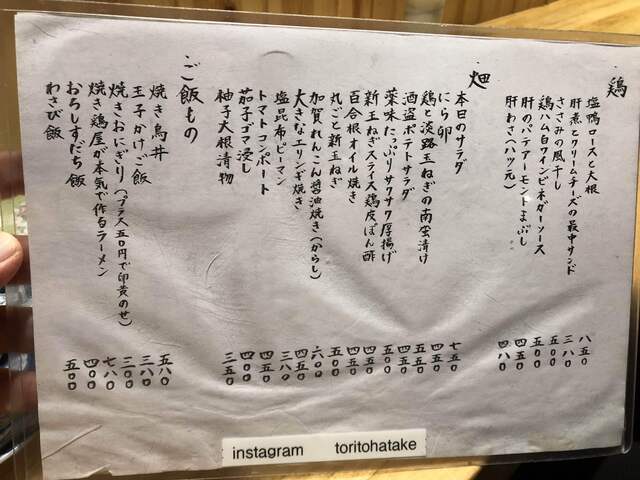 鶏
塩鴨ロースと大根 八五〇
肝煮とクリームチーズの最中サンド 三八〇
ささみの風干し 五〇〇
鶏ハム白ワインビネガーソース 五五〇
肝のパテアーモンドまぶし 四五〇
肝わさ(ハツ元) 四八〇
畑
本日のサラダ 七五〇
にら卵 四五〇
鶏と淡路玉ねぎの南蛮漬け 五五〇
酒盗ポテトサラダ 四五〇
薬味たっぷりサクサク厚揚げ 五五〇
新玉ねぎスライス鶏皮ぽん酢 四五〇
百合根オイル焼き 四五〇
丸ごと新玉ねぎ 五〇〇
加賀れんこん醤油焼き(からし) 六〇〇
大きなエリンギ焼き 四五〇
塩昆布ピーマン 三八〇
トマトコンポート 四五〇
茄子ゴマ浸し 四〇〇
柚子大根漬物 三五〇
ご飯もの
焼き鳥丼 五八〇
玉子かけご飯 三八〇
焼きおにぎり(プラス五〇円で卵黄のせ) 三〇〇
焼き鶏屋が本気で作るラーメン 七八〇
おろしすだち飯 四〇〇
わさび飯 五〇〇
instagram toritohatake